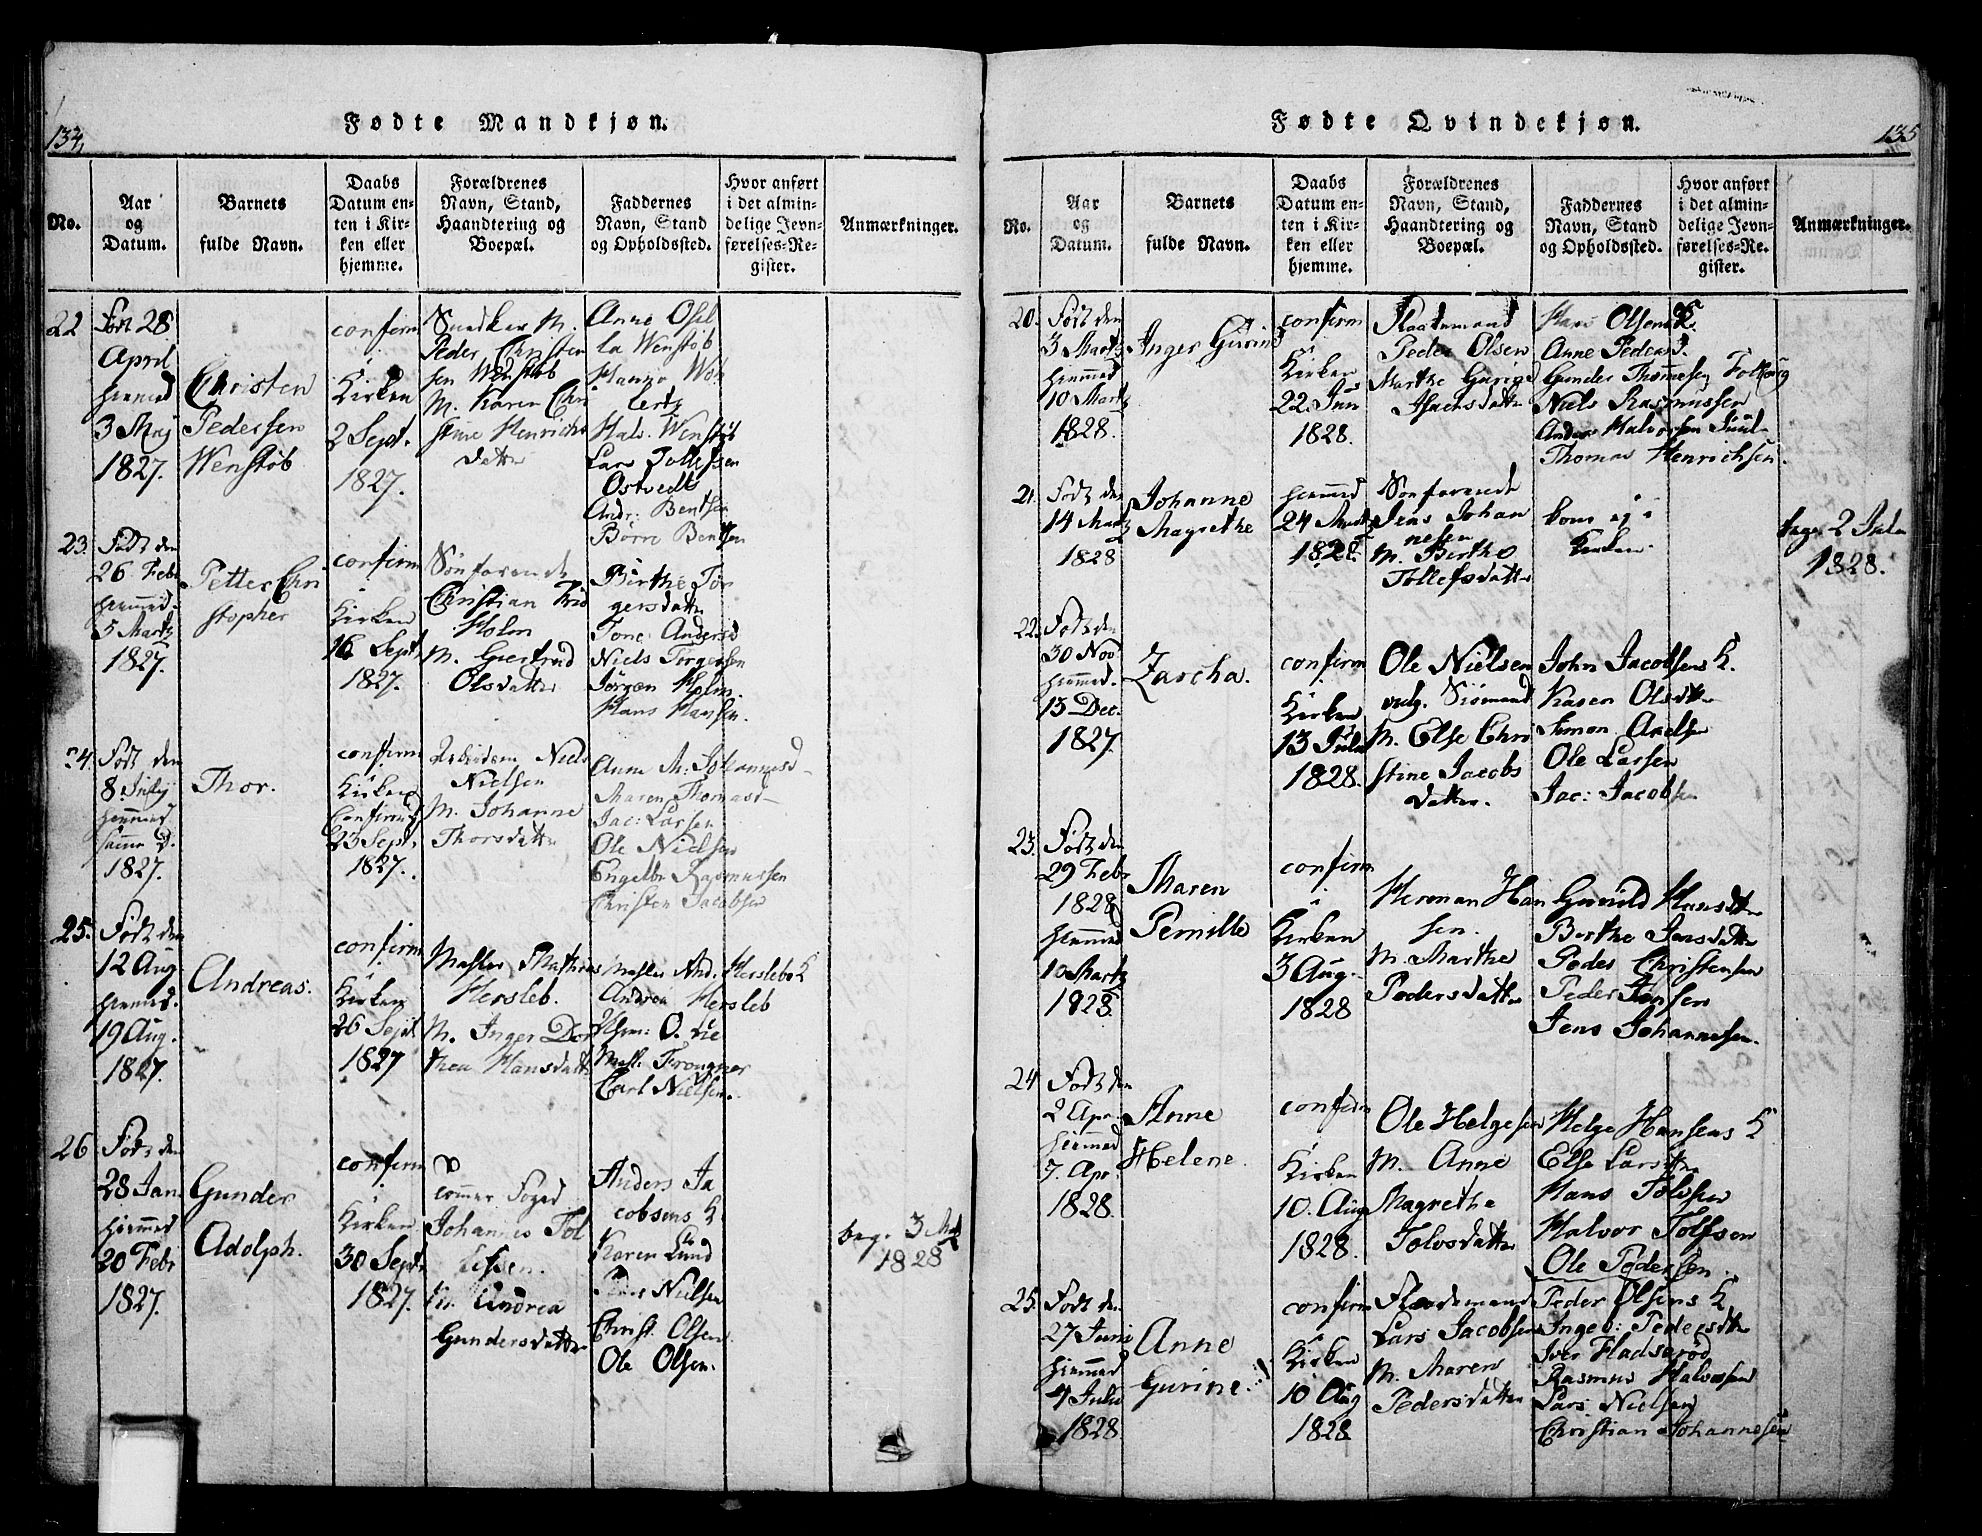 134
Fødte Mandkjøn.
No.
Aar
og
Datum.
Barnets
fulde Navn.
Daabs
Datum en-
ten i Kir-
ken eller
hjemme.
Forældrenes
Navn, Stand,
Haandtering og
Boepæl.
Faddernes
Navn, Stand
og Opholdssted.
Hvor anført
i det almin-
delige Jevn-
førelses-Re-
gister.
Anmærkninger.
22
Født 28
April
hiemmed
3 Maj
1827.
Christen
Pedersen
Wenstøb
confirm
i
Kirken
2 Sept.
1827.
M.
Peder Christen
sen Wenstøb
M. Karen Chri
stine Henrichs
datter
Anne
la Wenstøb
Halv. Wenstøb
Lars Tollefsen
Ostvedt
Andr: Bentsen
Børre Bentsen
23.
Født den
26 Febr
hiemmed.
5 Martz
1827.
Petter Chri
stopher
confirm
i
Kirken
16 Sept.
1827.
Sønfarende
Christian
Holm
M. Giertrud
Olsdatter
Birthe Tor
gersdatter
Tone Andersd
Niels Torgersen
Jørgen Holm.
Hans Hansen.
24.
Født den
8 July
hiemmed
samme D.
1827.
Thor.
confirm
i
Kirken
23 Sept.
1827.
Arbeidsm Niels
Nielsen
M. Johanne
Thorsdatter
Anne M. Johannesd
Maren Thomasd
Jac: Larsen
Ole Nielsen
Engelbr Rasmussen
Christen Jacobsen
25.
Født den
12 Aug
hiemmed.
19 Aug.
1827.
Andreas.
confirm
i
Kirken
26 Sept
1827
Mathias
Hersleb.
M. Inger Dor
thea Hansdatter
And. Herslebs K
Andrea Hersleb
Frougner
Carl Nielsen.
26
Født den
28 Jan
hiemmed
20 Febr
1827.
Gunder
Adolph.
confirm
i
Kirken
30 Sept.
1827.
Foged
Johannes Tol
lefsen.
M. Andrea
Gundersdatter
Anders Ja
cobsens K
Karen Lund
Nielsen
Christ. Olsen
Ole Olsen.
beg. 3
1828
135
Fødte Qvindekjøn.
No.
Aar
og
Datum.
Barnets
fulde Navn.
Daabs
Datum en-
ten i Kir-
ken eller
hjemme.
Forældrenes
Navn, Stand,
Haandtering og
Boepæl.
Faddernes
Navn, Stand
og Opholdssted.
Hvor anført
i det almin-
delige Jevn-
førelses-Re-
gister.
Anmærkninger.
20.
Født den
3 Martz
hiemmed
10 Martz
1828.
Inger Gurine
confirm
i
Kirken
22 Jun
1828.
Peder Olsen
Marthe Gurine
Isachsdatter
Hans Olsens K.
Anne Pedersd.
Gunder Thommesen
Niels Rasmussen
Anders Halvorsen
Thomas Henrichsen.
21.
Født den
14 Martz
1828
Johanne
Magrethe
hiemmed
24 Martz
1828.
Sønfarende
Jens Johan
nesen
M. Birthe
Tollefsdatter
kom ej i
Kirken.
begr. 2 Jule
1828.
22.
Født den
30 Nov
hiemmed.
13 Dec.
1827.
Zarcha.
confirm
i
Kirken
13 Jula
1828.
Ole Nielsen
Siømand
M. Else Chri
stine Jacobs
datter.
John Jacobsens K.
Karen Olsdtr
Simon Axelsen
Ole Larsen
Jac: Jacobsen
23.
Født den
29 Febr
1828
hiemmed
10 Martz
1828.
Maren
Pernille
confirm
i
Kirken
3 Aug.
1828
Herman Han
sen.
M. Marthe
Pedersdatter
Gunild Hansdtr
Berthe Jensdatter
Peder Christensen
Peder Jansen
Jens Johannesen.
24
Født den
2 Apr.
hiemmed
7. Apr.
1828.
Anne
Helene.
confirm
i
Kirken
10. Aug
1828.
Ole Helgesen
M. Anne
Magrethe
Tolvsdatter
Helge Hansens K
Else Larsdtr
Hans Tolvsen
Halvor Tolfsen
Ole Pedersen.
25.
Født den
27 Juni
hiemmed
4 Julii
1828.
Anne
Gurine.
confirm
i
Kirken
10 Aug
1828
Lars Jacobsen
M. Maren
Pedersdatter
Peder Olsens K
Ingeb: Pedersdtr
Iver Fladsrød
Rasmus Halvorsen
Lars Nielsen
Christian Johannesen